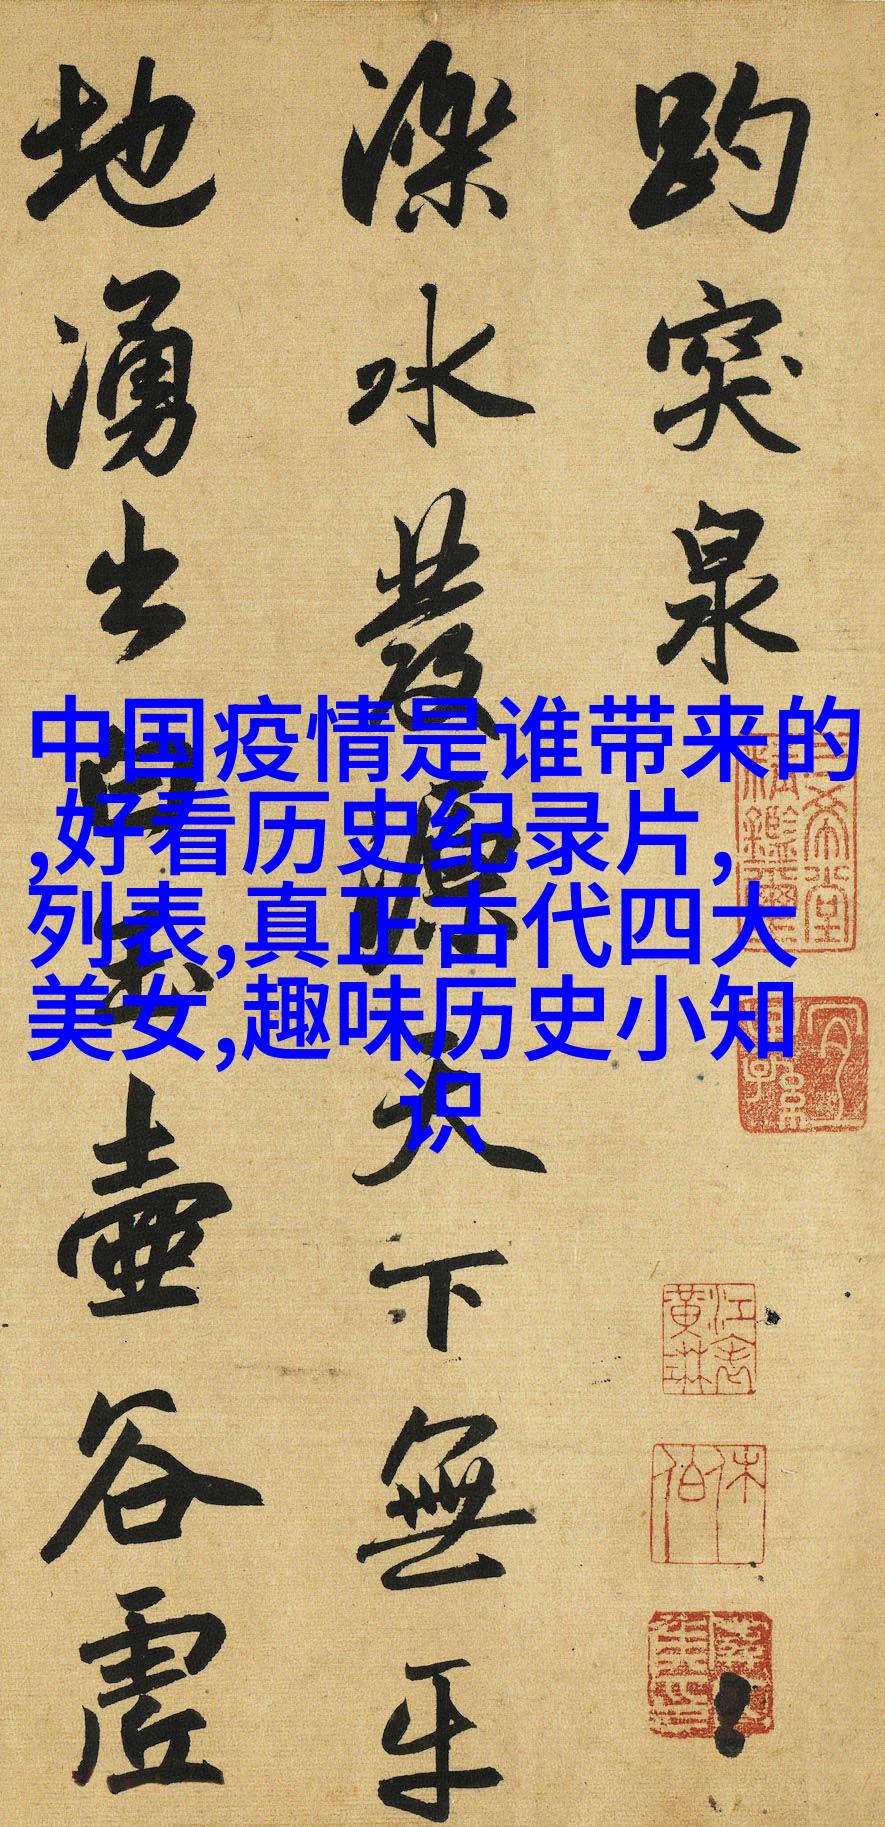 趵突泉
濼水發源天下無
平地湧出白玉壺
谷虛
中国疫情是谁带来的
,好看历史纪录片,
列表,真正古代四大
美女,趣味历史小知
识